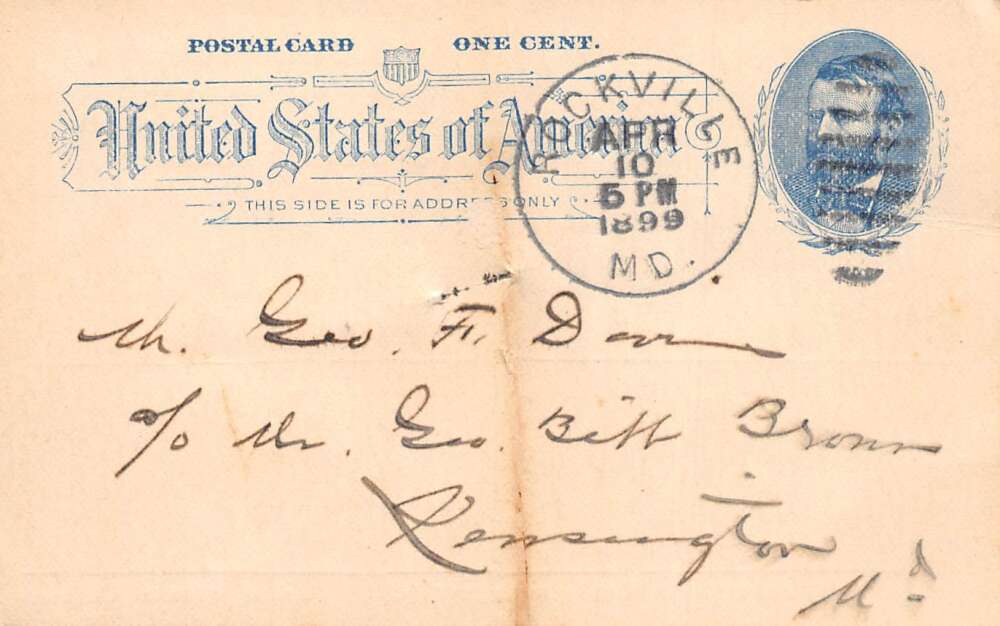 POSTAL CARD ONE CENT.
United States of America
THIS SIDE IS FOR ADDRESS ONLY
ROCKVILLE
APR
10
5 PM
1899
MD.
Mr. Geo. F.
c/o Mr. Geo. Brown
Kensington
Md